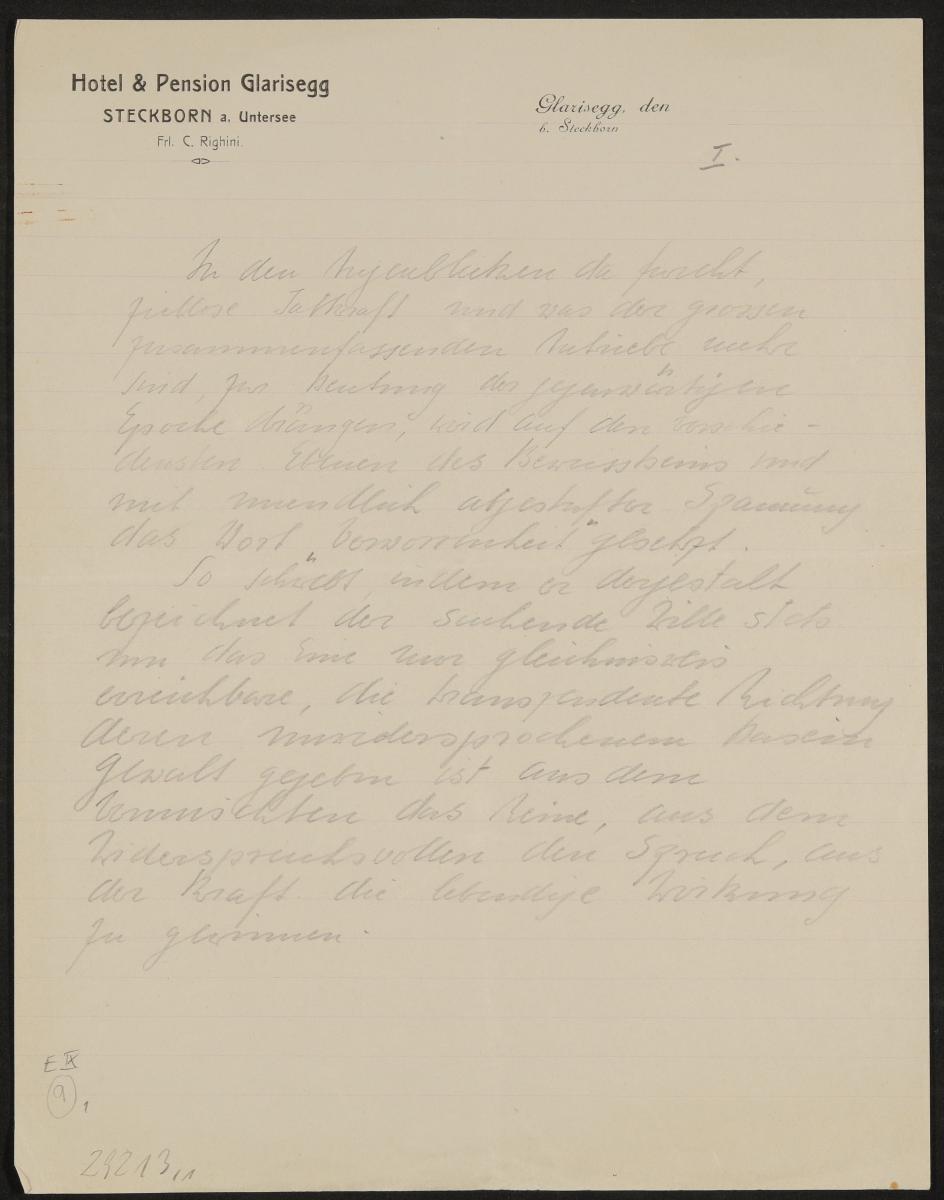 Hotel & Pension Glarisegg
STECKBORN a. Untersee
Frl. C. Righini.
Glarisegg, den
b. Steckborn
I.
In den Augenblicken da Furcht,
ziellose Tatkraft und was der grossen
zusammenfassenden Antriebe mehr
sind, zur Deutung der gegenwärtigen
Epoche drängen, wird auf den verschie-
densten Ebenen des Bewusstseins und
mit unendlich abgestufter Spannung
das Wort "Verworrenheit" gesetzt.
So schwebt, indem er dergestalt
bezeichnet der suchende Wille stets
um das Eine nur gleichnisweis
erreichbare, die transzendente Richtung
deren unwidersprochenem Dasein
Gewalt gegeben ist aus dem
Vermischten das Reine, aus dem
Widerspruchsvollen den Spruch, aus
der Kraft die lebendige Wirkung
zu gewinnen.
E IX
9 1
29213,1